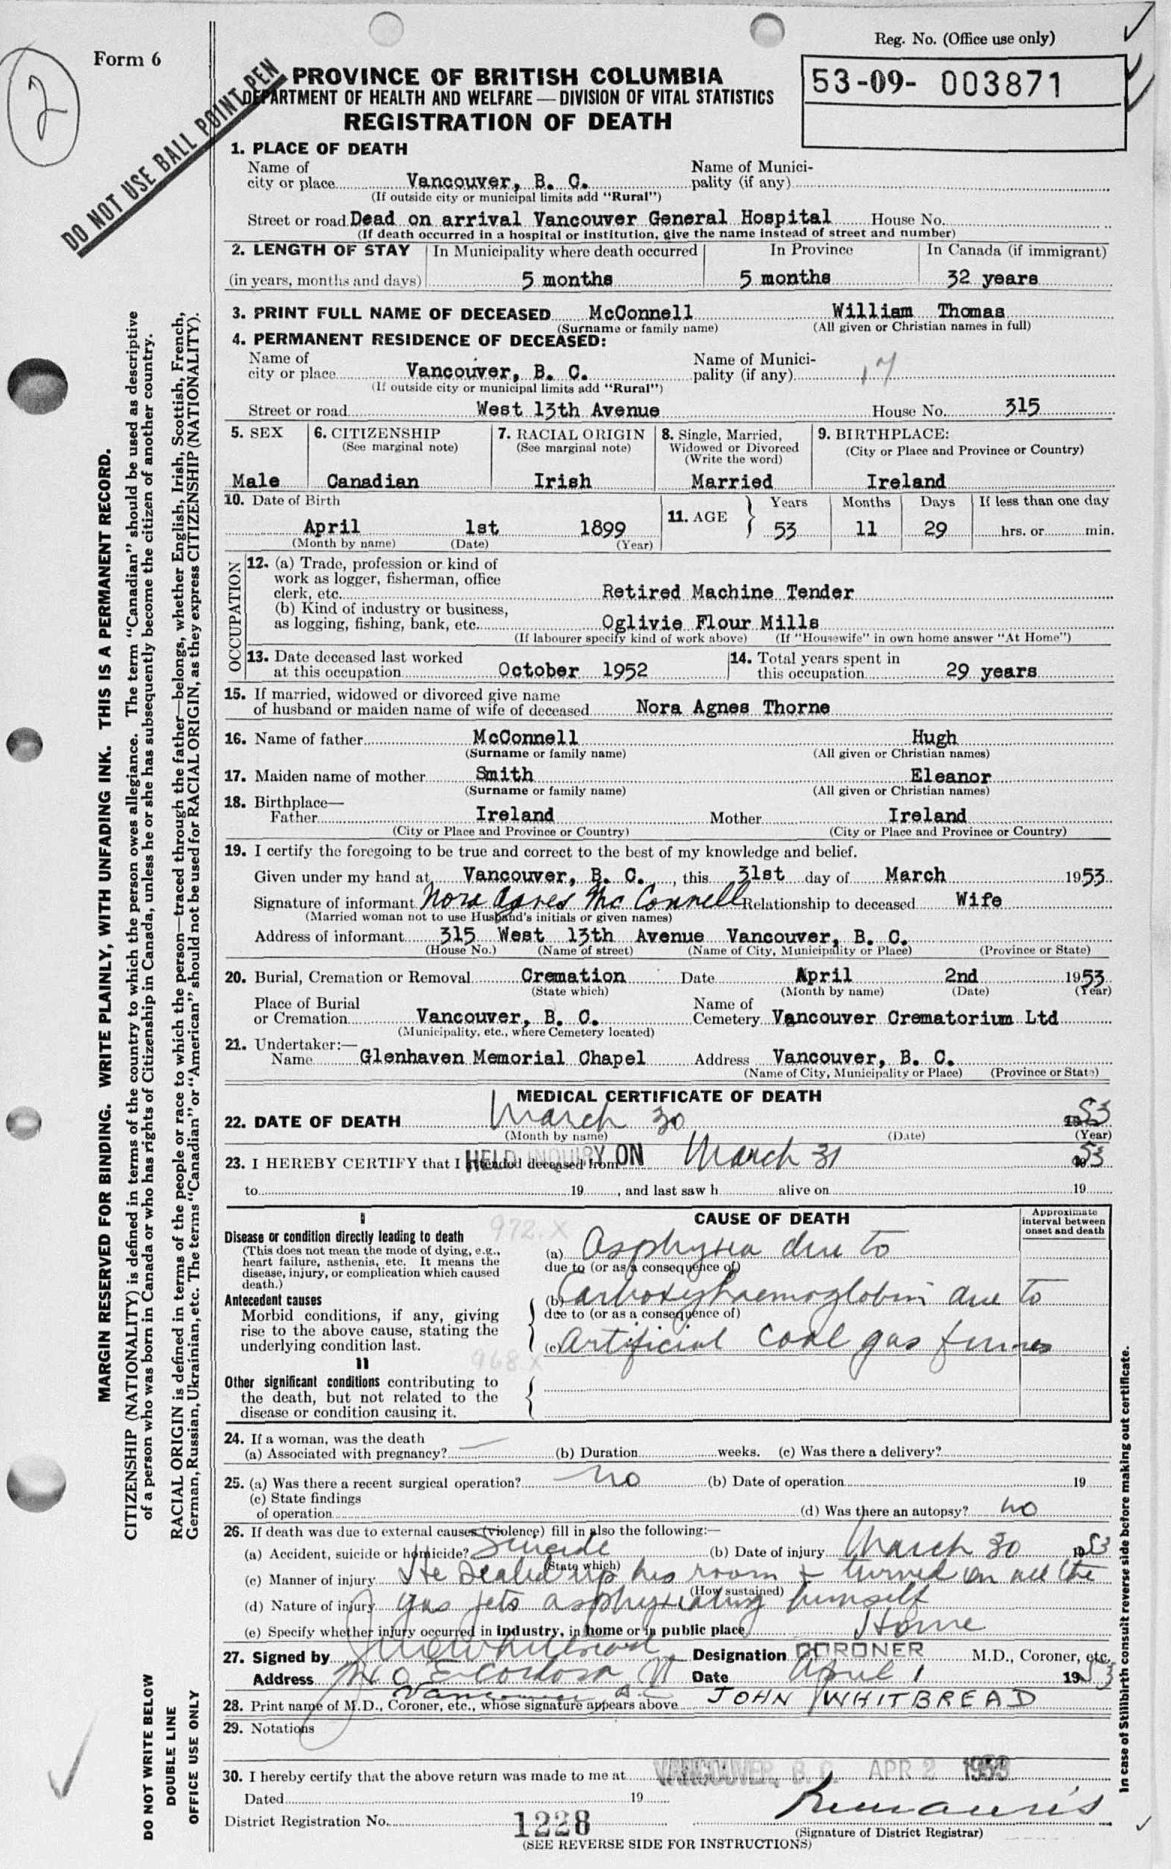 Form 6
2
DO NOT USE BALL POINT PEN
Reg. No. (Office use only)
53-09- 003871
PROVINCE OF BRITISH COLUMBIA
DEPARTMENT OF HEALTH AND WELFARE — DIVISION OF VITAL STATISTICS
REGISTRATION OF DEATH
1. PLACE OF DEATH
Name of city or place Vancouver, B. C. Name of Municipality (if any)
(If outside city or municipal limits add "Rural")
Street or road Dead on arrival Vancouver General Hospital House No.
(If death occurred in a hospital or institution, give the name instead of street and number)
2. LENGTH OF STAY In Municipality where death occurred In Province In Canada (if immigrant)
(in years, months and days) 5 months 5 months 32 years
3. PRINT FULL NAME OF DECEASED McConnell William Thomas
(Surname or family name) (All given or Christian names in full)
4. PERMANENT RESIDENCE OF DECEASED:
Name of city or place Vancouver, B. C. Name of Municipality (if any) 17
(If outside city or municipal limits add "Rural")
Street or road West 13th Avenue House No. 315
5. SEX 6. CITIZENSHIP 7. RACIAL ORIGIN 8. Single, Married, Widowed or Divorced 9. BIRTHPLACE:
(See marginal note) (See marginal note) (Write the word) (City or Place and Province or Country)
Male Canadian Irish Married Ireland
10. Date of Birth 11. AGE Years Months Days If less than one day
April 1st 1899 53 11 29 hrs. or min.
(Month by name) (Date) (Year)
OCCUPATION
12. (a) Trade, profession or kind of
work as logger, fisherman, office
clerk, etc. Retired Machine Tender
(b) Kind of industry or business,
as logging, fishing, bank, etc. Oglivie Flour Mills
(If labourer specify kind of work above) (If "Housewife" in own home answer "At Home")
13. Date deceased last worked at this occupation October 1952 14. Total years spent in this occupation 29 years
15. If married, widowed or divorced give name
of husband or maiden name of wife of deceased Nora Agnes Thorne
16. Name of father McConnell Hugh
(Surname or family name) (All given or Christian names)
17. Maiden name of mother Smith Eleanor
(Surname or family name) (All given or Christian names)
18. Birthplace—
Father Ireland Mother Ireland
(City or Place and Province or Country) (City or Place and Province or Country)
19. I certify the foregoing to be true and correct to the best of my knowledge and belief.
Given under my hand at Vancouver, B. C. , this 31st day of March 1953
Signature of informant Nora Agnes McConnell Relationship to deceased Wife
(Married woman not to use Husband's initials or given names)
Address of informant 315 West 13th Avenue Vancouver, B. C.
(House No.) (Name of street) (Name of City, Municipality or Place) (Province or State)
20. Burial, Cremation or Removal Cremation Date April 2nd 1953
(State which) (Month by name) (Date) (Year)
Place of Burial or Cremation Vancouver, B. C. Name of Cemetery Vancouver Crematorium Ltd
(Municipality, etc., where Cemetery located)
21. Undertaker:—
Name Glenhaven Memorial Chapel Address Vancouver, B. C.
(Name of City, Municipality or Place) (Province or State)
MEDICAL CERTIFICATE OF DEATH
22. DATE OF DEATH March 30 1953
(Month by name) (Date) (Year)
23. I HEREBY CERTIFY that I attended deceased from HELD INQUIRY ON March 31 1953
to 19 , and last saw h alive on 19
I CAUSE OF DEATH Approximate interval between onset and death
972.X
Disease or condition directly leading to death
(This does not mean the mode of dying, e.g.,
heart failure, asthenia, etc. It means the
disease, injury, or complication which caused
death.)
(a) Asphyxia due to
due to (or as a consequence of)
Antecedent causes
Morbid conditions, if any, giving
rise to the above cause, stating the
underlying condition last.
(b) Carboxyhaemoglobin due to
due to (or as a consequence of)
(c) Artificial coal gas fumes
II
968.X
Other significant conditions contributing to
the death, but not related to the
disease or condition causing it.
24. If a woman, was the death
(a) Associated with pregnancy? (b) Duration weeks. (c) Was there a delivery?
25. (a) Was there a recent surgical operation? no (b) Date of operation 19
(c) State findings
of operation (d) Was there an autopsy? no
26. If death was due to external causes (violence) fill in also the following:—
(a) Accident, suicide or homicide? Suicide (b) Date of injury March 30 1953
(State which)
(c) Manner of injury He sealed up his room + turned on all the
(How sustained)
(d) Nature of injury gas jets asphyxiating himself
(e) Specify whether injury occurred in industry, in home or in public place Home
27. Signed by Whitbread Designation CORONER M.D., Coroner, etc.
Address 240 E Cordova St Date April 1 1953
Vancouver B.C.
28. Print name of M.D., Coroner, etc., whose signature appears above JOHN WHITBREAD
29. Notations
30. I hereby certify that the above return was made to me at VANCOUVER, B. C. APR 2 1953
Dated 19
District Registration No. 1228
(Signature of District Registrar)
(SEE REVERSE SIDE FOR INSTRUCTIONS)
MARGIN RESERVED FOR BINDING. WRITE PLAINLY, WITH UNFADING INK. THIS IS A PERMANENT RECORD.
CITIZENSHIP (NATIONALITY) is defined in terms of the country to which the person owes allegiance. The term "Canadian" should be used as descriptive
of a person who was born in Canada or who has rights of Citizenship in Canada, unless he or she has subsequently become the citizen of another country.
RACIAL ORIGIN is defined in terms of the people or race to which the person—traced through the father—belongs, whether English, Irish, Scottish, French,
German, Russian, Ukrainian, etc. The terms "Canadian" or "American" should not be used for RACIAL ORIGIN, as they express CITIZENSHIP (NATIONALITY).
DO NOT WRITE BELOW
DOUBLE LINE
OFFICE USE ONLY
In case of Stillbirth consult reverse side before making out certificate.